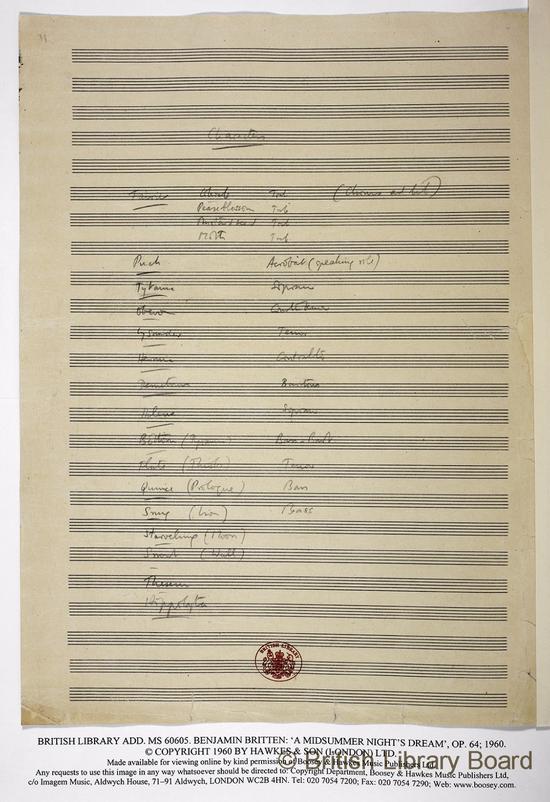 Characters
Fairies Cobweb Treb (Chorus and
Peaseblossom Treb
Mustardseed Treb
Moth Treb
Puck Acrobat (speaking role)
Tytania Soprano
Oberon Counter tenor
Lysander Tenor
Hermia Contralto
Demetrius Baritone
Helena Soprano
Bottom (Pyramus) Bass-Barit
Flute (Thisbe) Tenor
Quince (Prologue) Bass
Snug (Lion) Bass
Starveling (Moon)
Snout (Wall)
Theseus
Hippolyta
BRITISH LIBRARY
BRITISH LIBRARY ADD. MS 60605. BENJAMIN BRITTEN: 'A MIDSUMMER NIGHT'S DREAM', OP. 64; 1960.
© COPYRIGHT 1960 BY HAWKES & SON (LONDON) LTD.
Made available for viewing online by kind permission of Boosey & Hawkes Music Publishers Ltd.
© British Library Board
Any requests to use this image in any way whatsoever should be directed to: Copyright Department, Boosey & Hawkes Music Publishers Ltd,
c/o Imagem Music, Aldwych House, 71–91 Aldwych, LONDON WC2B 4HN. Tel: 020 7054 7200; Fax: 020 7054 7290; Web: www.boosey.com.